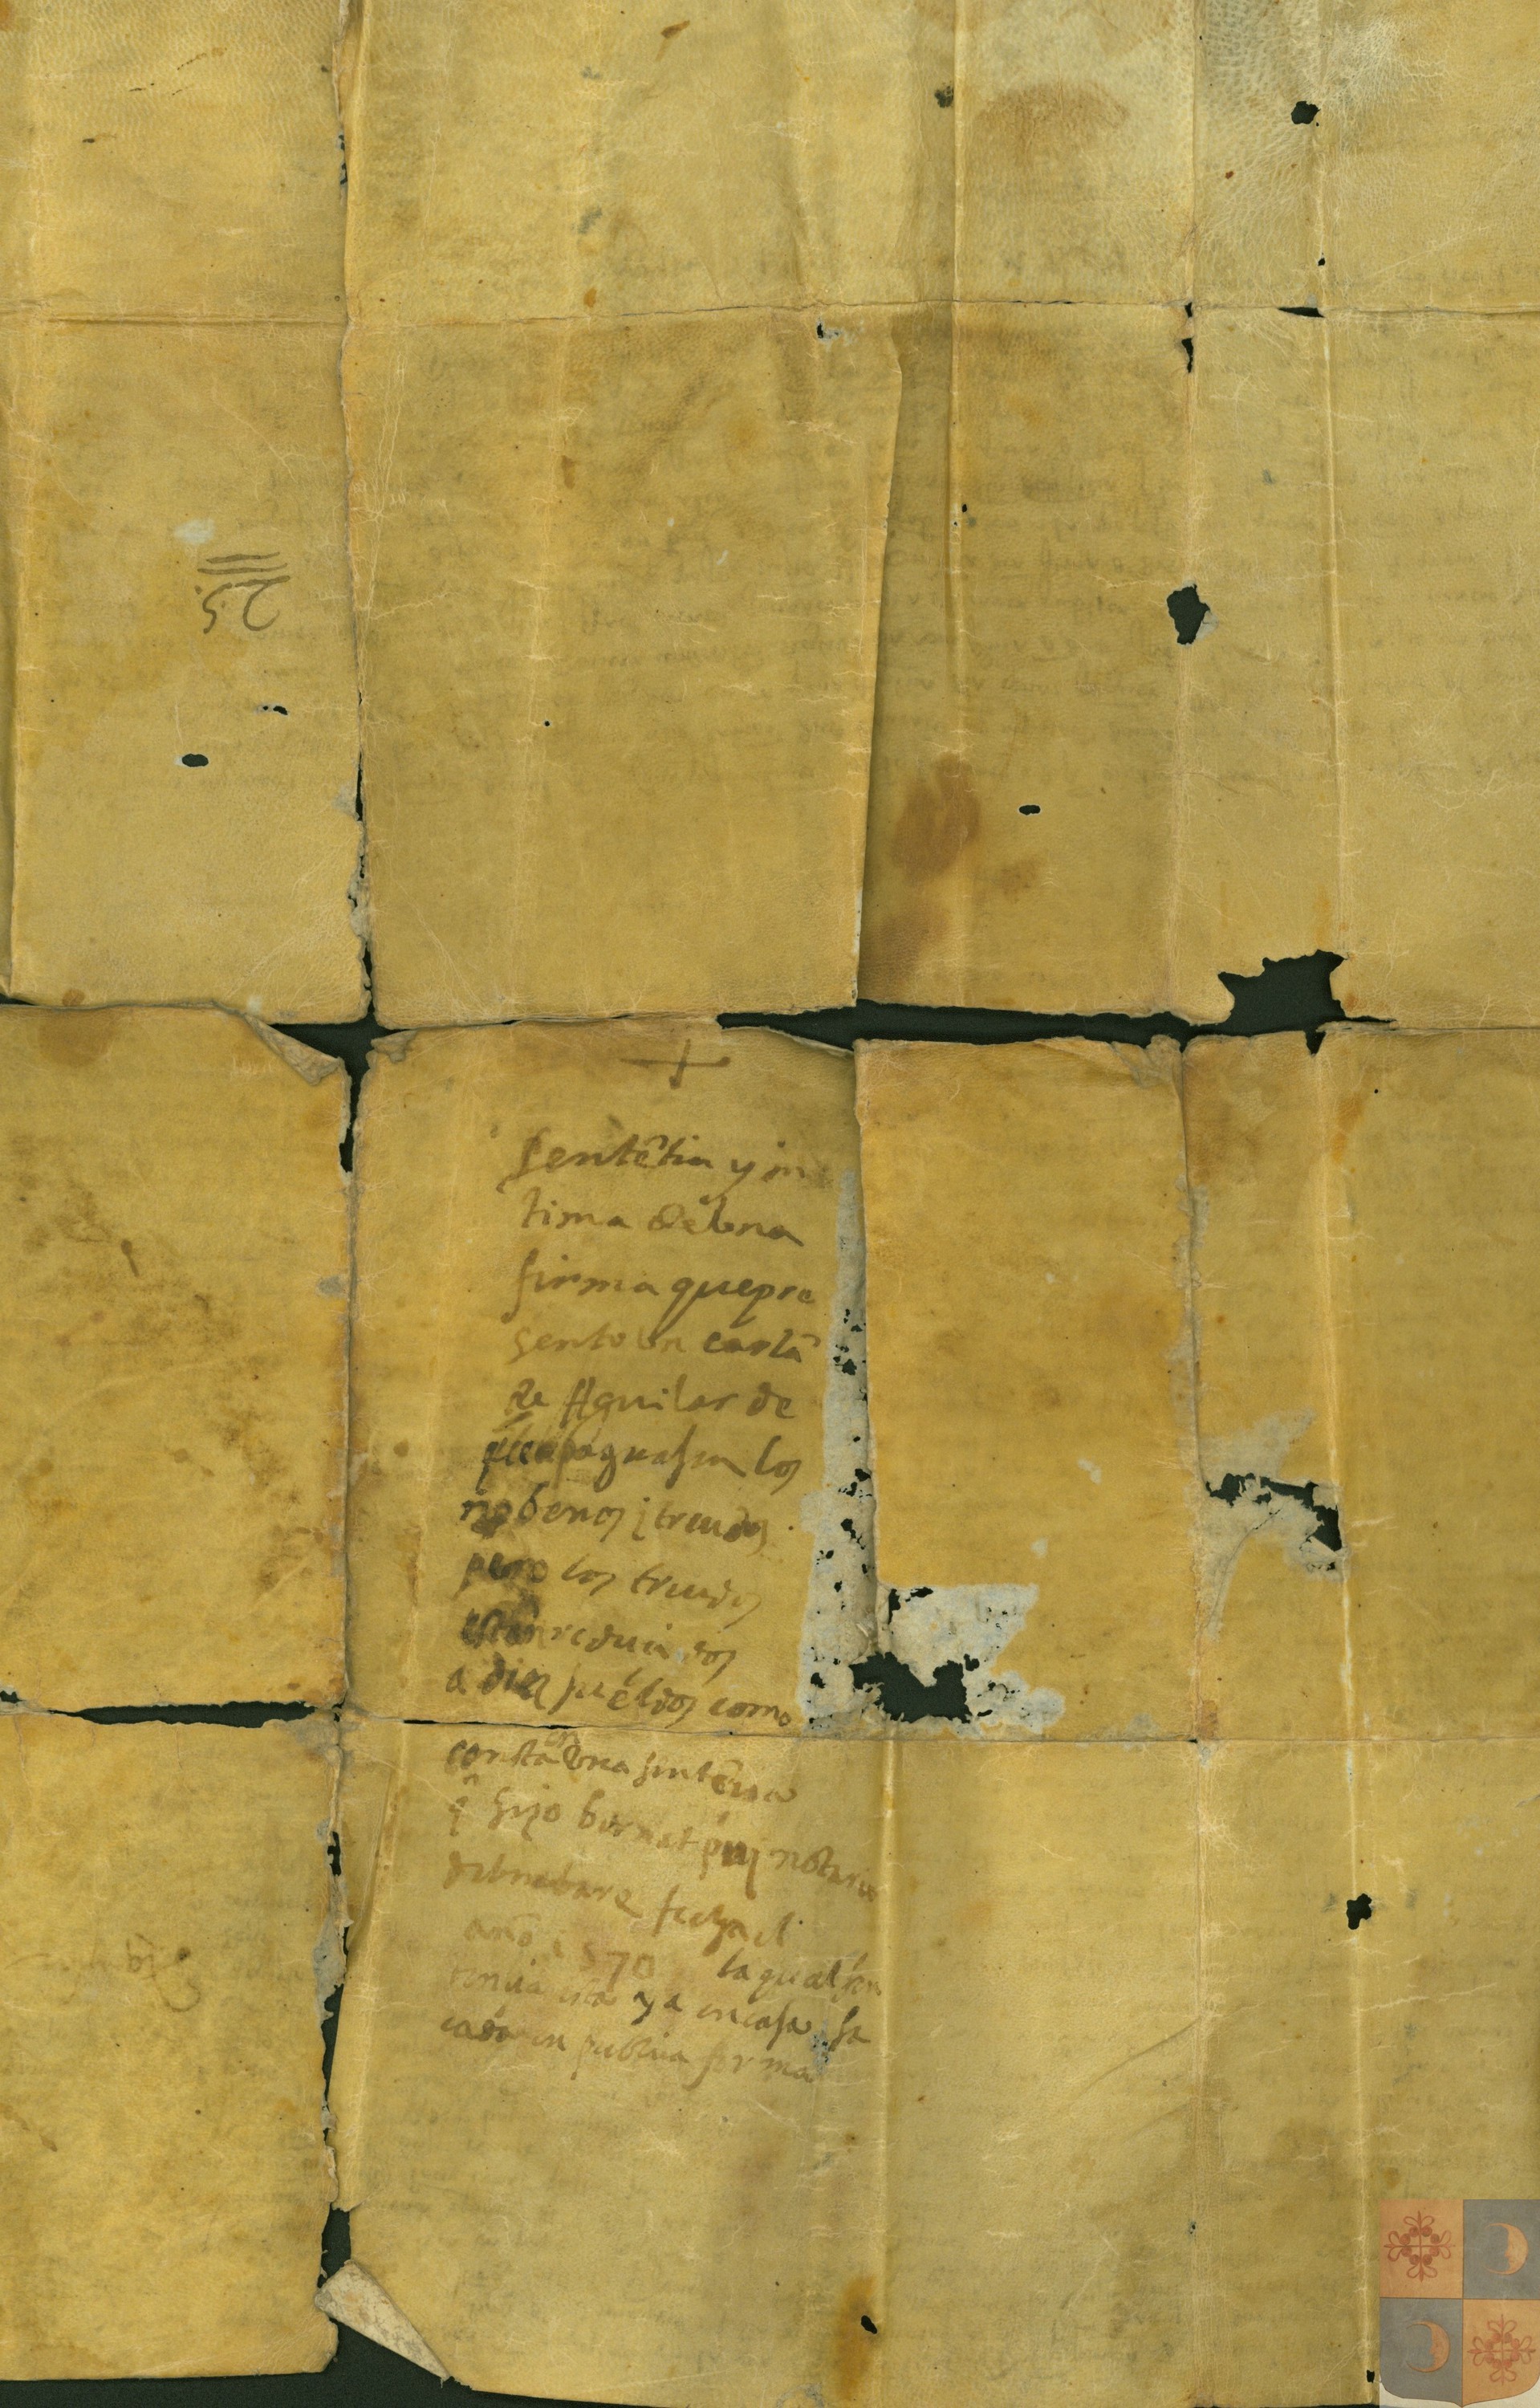 25
+
sentētia y in
tima de vna
firma que pre
sento vn cartā
de Aguilar de
que paguassen los
nobenos i treudos
pero los treudos
estan reduidos
a diez sueldos como
consta en vna sentēcia
q̄ hizo bernat puy notario
de benabarre fecha el
año 1570 la qual sen
tencia esta ya en casa sa
cada en publica forma